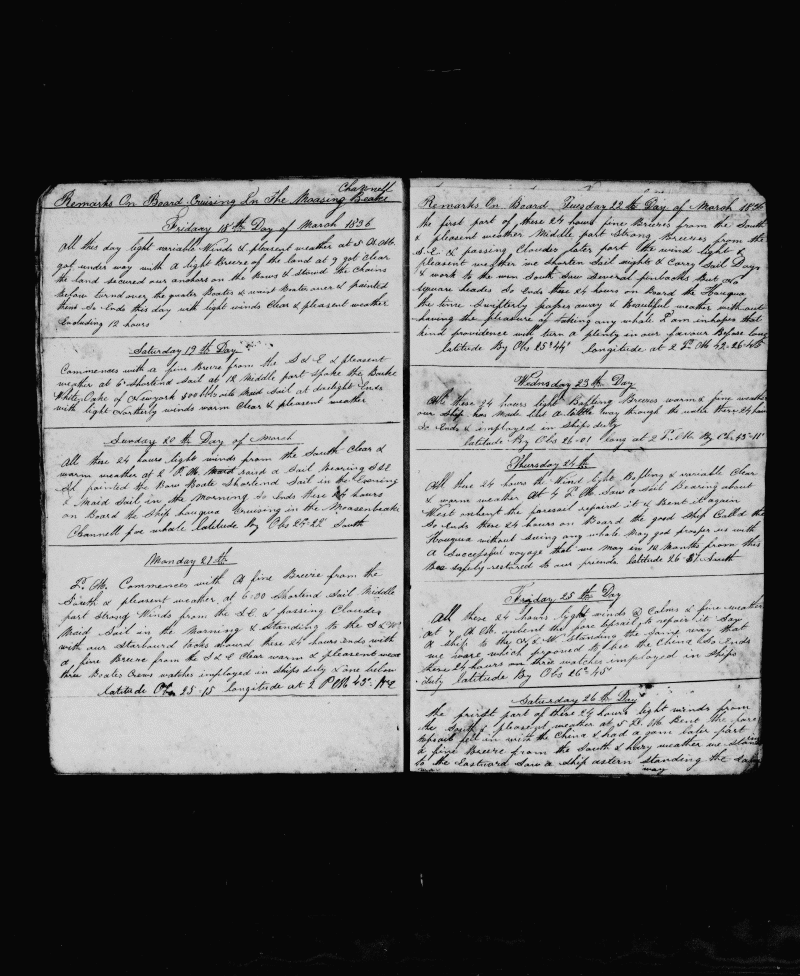 Channell
Remarks On Board Cruising In The Moasing Beake
Friday 18th Day of March 1836
All this day light variable Winds & pleasent weather at 5 A.M.
got under way with A light Breeze of the land at 9 got Clear
the land secured our anchors on the Bows & stowed the Chains
before turnd over the quater Boates & waist Boates over & painted
them So Ends this day with light winds Clear & pleasent weather
Encluding 12 hours
Saturday 19th Day
Commences with a fine Breze from the S & E & pleasent
weather at 6 Shortend Sail at 12 Middle part Spoke the Barke
White Oake of Newyork 500 bbls oile Maid Sail at daelight Ends
with light Northerly winds warm Clear & pleasent weather
Sunday 20th Day of March
All these 24 hours light winds from the South Clear &
warm weather at 2 P.M. raisd a Sail Bearing S & E
painted the Bow Boate Shortend Sail in the Evening
& Maid Sail in the Morning So Ends these 24 hours
on Board the Ship houqua Cruising in the Mosenbeake
Channell for whale latitude By Obs 24-22 South
Monday 21th
P.M. Commences with A fine Breeze from the
South & pleasent weather, at 6.00 Shortend Sail Middle
part Strong Winds from the S.E. & passing Clouds
Maid Sail in the Morning & Standing to the S & W
with our Starbourd tacks abourd these 24 hours ends with
a fine Breeze from the S & E Clear warm & pleasent weat
three Boates Crews watches imployed in ships duty & one below
latitude Obs 25-15 longitude at 2 PM 43-
Remarks On Board Tuesday 22th Day of March 1836
the first part of these 24 hours fine Breezes from the South
& pleasent weather Middle part Strong Breezes from the
S.E. & passing Clouds later part the wind light &
pleasent weather we Shorten Sail nights & Carry Sail Days
& work to the South Saw Several finbacks But No
Square heades So Ends these 24 hours on Board the Houqua
the time Swifterly passes away & Beautiful weather without
having the pleasure of taking any whale I am inhopes that
kind providence will turn a plenty in our favour Before long
latitude By Obs 25°44' longitude at 2 P.M. 42-26-45
Wednesday 23th Day
All these 24 hours light Baffling Breezes warm & fine weather
our Ship has Made But A little way through the water these 24 hours
So Ends & imployed in Ships duty
latitude By Obs 26-01 long at 2 P.M. By Ch. 43-11
Thursday 24th
All these 24 hours the Wind light Baffling & variable Clear
& warm weather At 4 P.M. Saw a Sail Bearing about
West unbent the foresail repaird it & Bent it again
So Ends these 24 hours on Board the good Ship Calld the
Houqua without seing any whale May god prosper us with
A Successful voyage that we May in 10 Months from this
Bee safely restored to our friends latitude 26-31 South
Friday 25th Day
All these 24 hours light winds & Calms & fine weather
at 7 A.M. unbent the fore topsail to repair it Saw
A Ship to the S & W Standing the Same way that
we ware which prooved to bee the China So Ends
these 24 hours on three watches imployed in Ships
duty latitude By Obs 26°45'
Saturday 26th Day
the firdst part of these 24 hours light winds from
the South & pleasent weather at 5 P.M. Bent the fore
topsail fell in with the China & had a gam later part
a fine Breeze from the South & hazy weather we stand
to the Eastward Saw a Ship astern Standing the Same
way